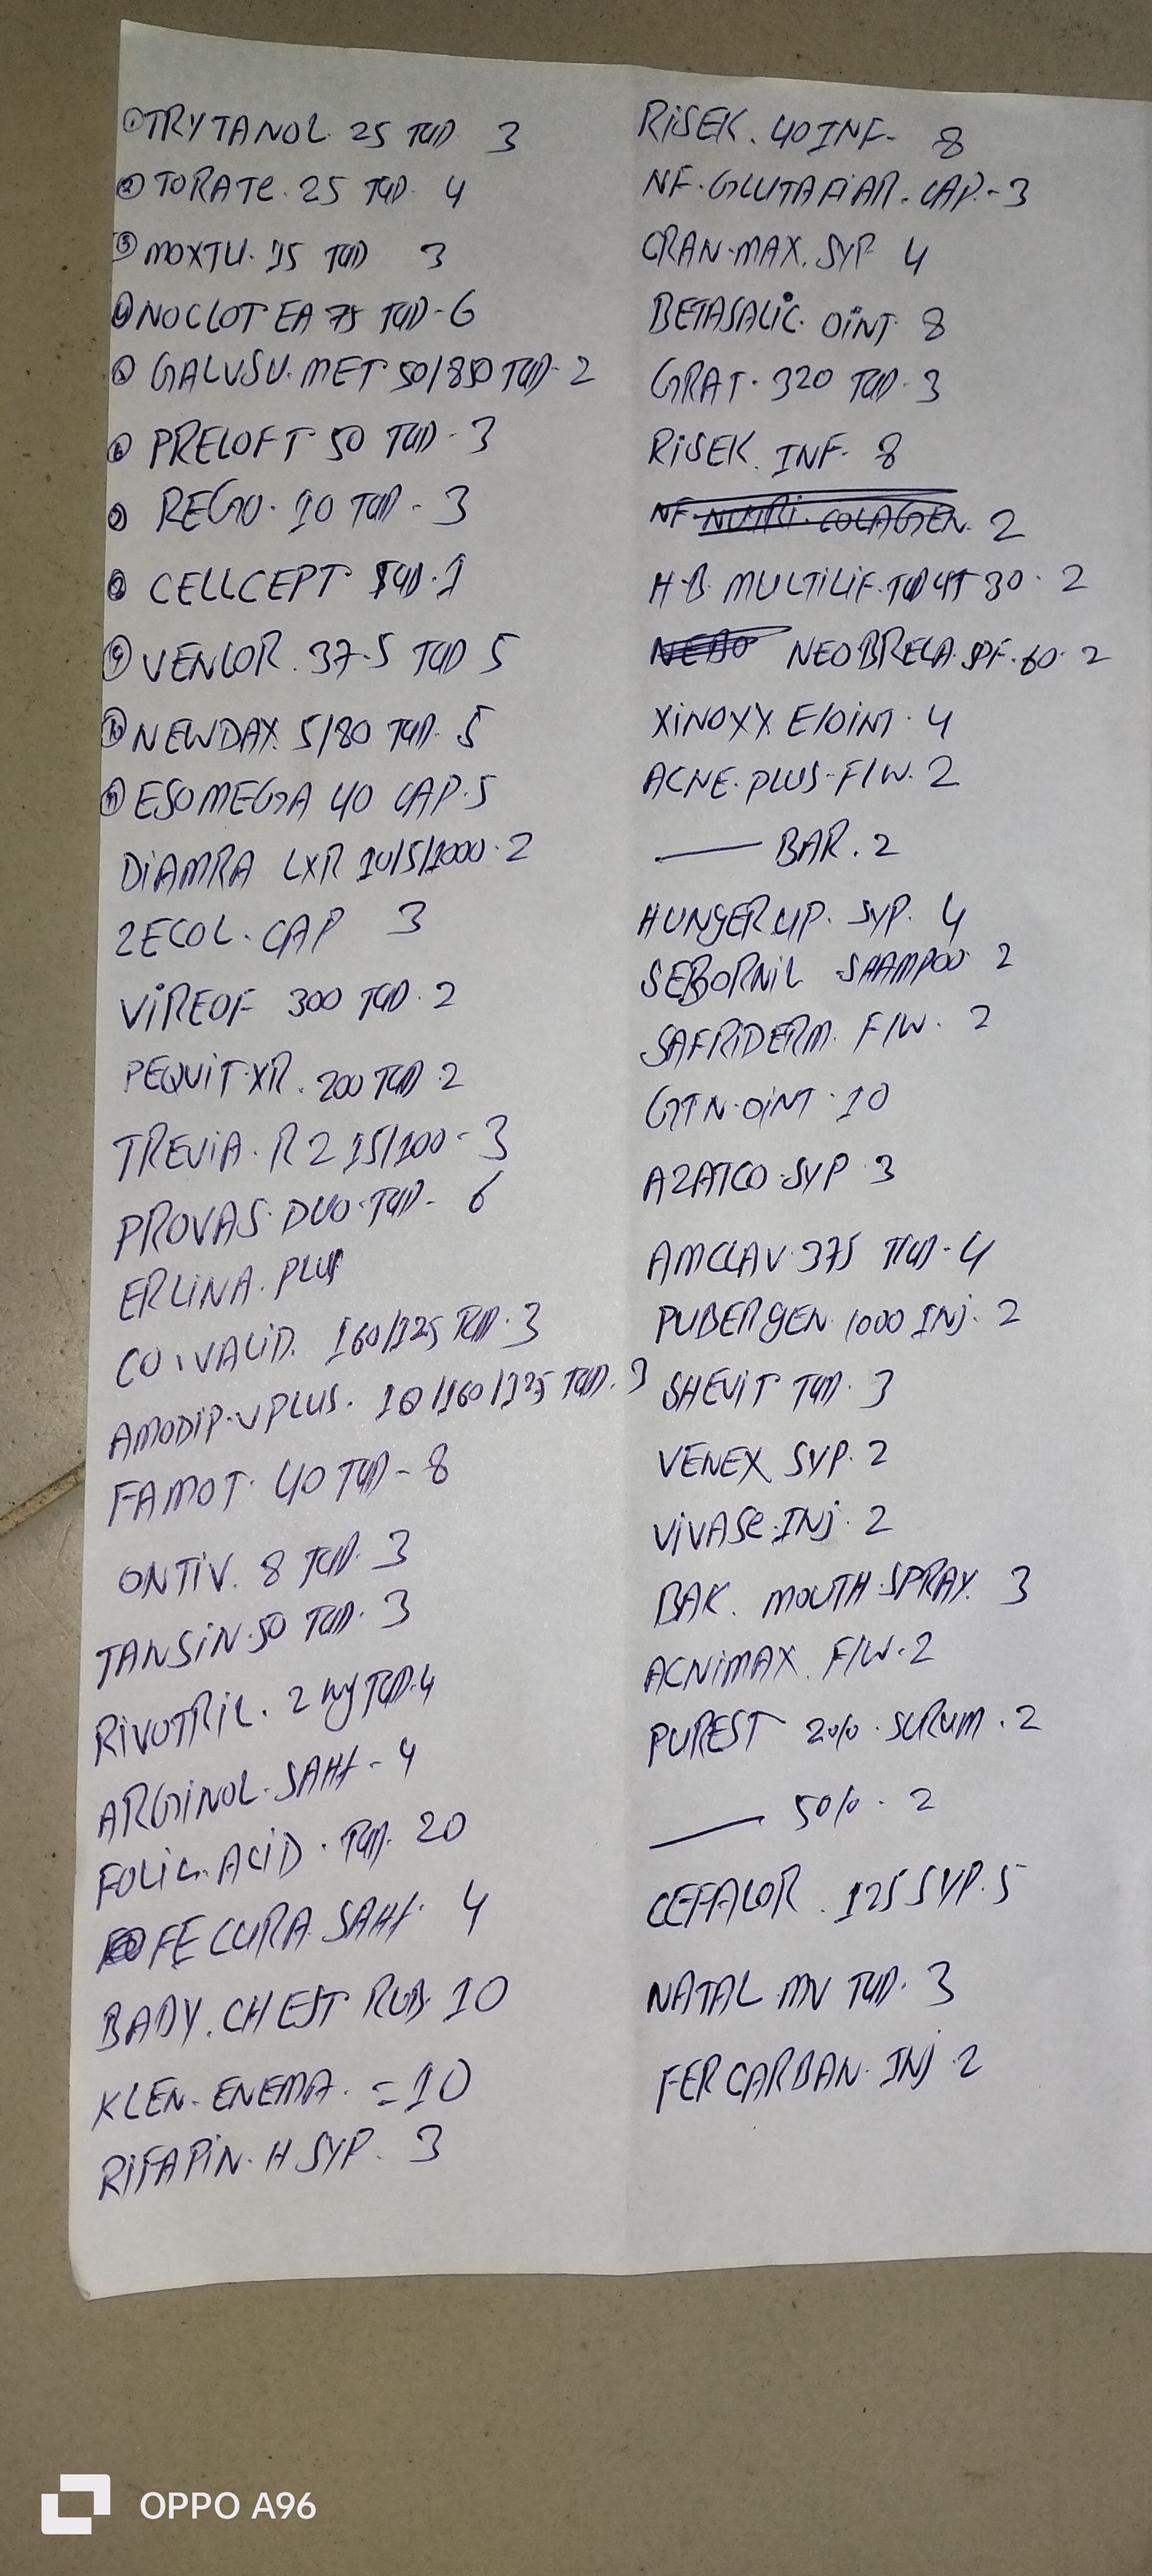 ① TRYTANOL 25 TAB 3
② TORATE. 25 TAB 4
③ MOXTU. 15 TAB 3
④ NOCLOT EA 75 TAB - 6
⑤ GALVSU. MET 50/850 TAB - 2
⑥ PRELOFT 50 TAB - 3
⑦ REGO. 10 TAB - 3
⑧ CELLCEPT TAB. 1
⑨ VENLOR. 37.5 TAB 5
⑩ NEWDAX 5/80 TAB. 5
⑪ ESOMEGA 40 CAP. 5
DIAMRA LXR 10/5/1000. 2
ZECOL. CAP 3
VIREOF 300 TAB. 2
PEQUIT XR. 200 TAB 2
TREVIA. R 2 15/100 - 3
PROVAS. DUO. TAB - 6
ERLINA. PLUS
CO. VALID. 160/125 TAB. 3
AMODIP. V PLUS. 10/160/125 TAB. 3
FAMOT. 40 TAB - 8
ONTIV. 8 TAB. 3
TANSIN. 50 TAB. 3
RIVOTRIL. 2 mg TAB. 4
ARGINOL. SAHt - 4
FOLIC. ACID. TAB. 20
FE CURA SAHt. 4
BABY. CHEST RUB. 10
KLEN. ENEMA. = 10
RIFAPIN. H SYP. 3
RISEK. 40 INF - 8
NF. GLUTAFIAR. CAP. - 3
CRAN-MAX. SYP 4
BETASALIC. OINT. 8
GRAT. 320 TAB. 3
RISEK. INF - 8
NF. NUTRI. COLAGEN. 2
H.B. MULTILIF. TAB 30. 2
NEBO NEOBRELA. SPF. 60. 2
XINOXX E/OINT. 4
ACNE. PLUS - F/W. 2
—— BAR. 2
HUNGER UP. SYP. 4
SEBORNIL SHAMPOO 2
SAFRIDERM. F/W. 2
GTN. OINT. 10
AZATCO. SYP 3
AMCLAV. 375 TAB - 4
PUBERGEN. 1000 INJ. 2
SHEVIT TAB. 3
VENEX SYP. 2
VIVASE. INJ. 2
BAK. MOUTH. SPRAY. 3
ACNIMAX. F/W. 2
PUREST 20%. SURUM. 2
—— 50%. 2
CEFALOR. 125 SYP. 5
NATAL MV TAB. 3
FERCARBAN. INJ 2